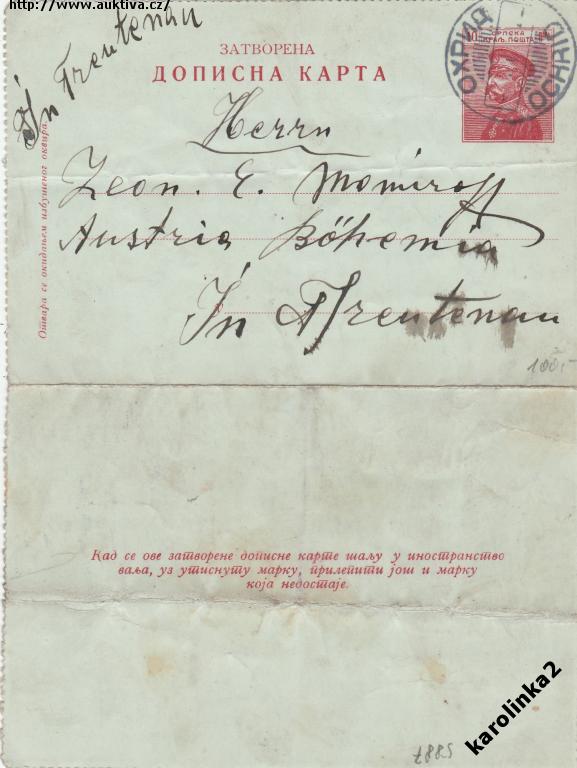 http://www.auktiva.cz/
In Trentenau
ЗАТВОРЕНА
ДОПИСНА КАРТА
10 СРПСКА
КРАЉ. ПОШТА
ОХРИД
Herrn
Leon. E. Momiroff
Austria Böhemia
In Trentenau
Отвара се окидањем избушеног оквира.
100,-
Кад се ове затворене дописне карте шаљу у иностранство
ваља, уз утиснуту марку, прилепити још и марку
која недостаје.
karolinka2